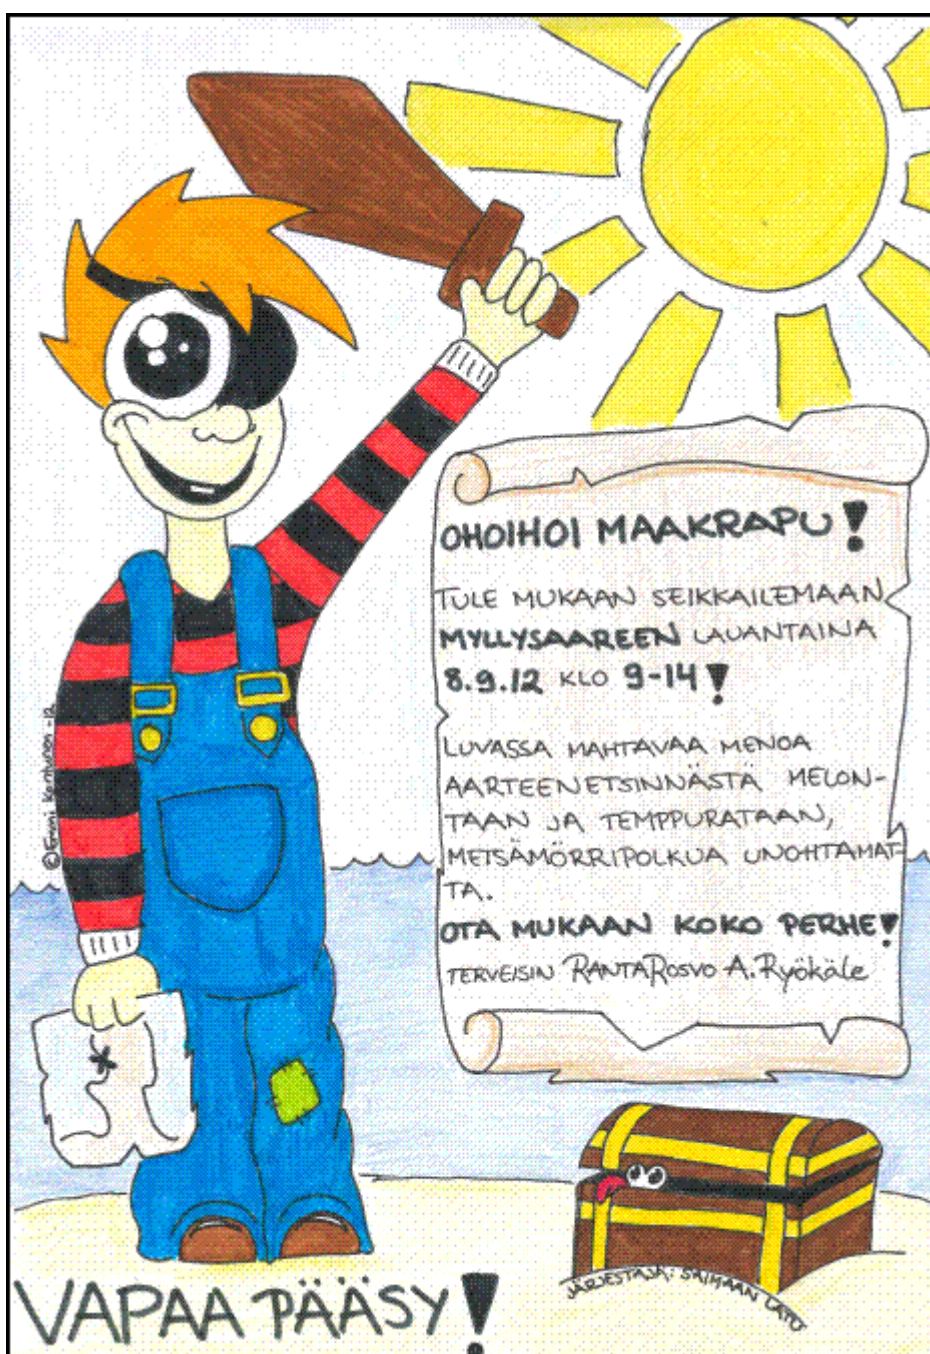 OHOIHOI MAAKRAPU!
TULE MUKAAN SEIKKAILEMAAN
MYLLYSAAREEN LAUANTAINA
8.9.12 KLO 9-14!
LUVASSA MAHTAVAA MENOA
AARTEENETSINNÄSTÄ MELON-
TAAN JA TEMPPURATAAN,
METSÄMÖRRIPOLKUA UNOHTAMAT-
TA.
OTA MUKAAN KOKO PERHE!
TERVEISIN RANTAROSVO A. Ryökäle
©Emmi Kontunen -12
JÄRJESTÄJÄ: SAIMAAN LATU
VAPAA PÄÄSY!